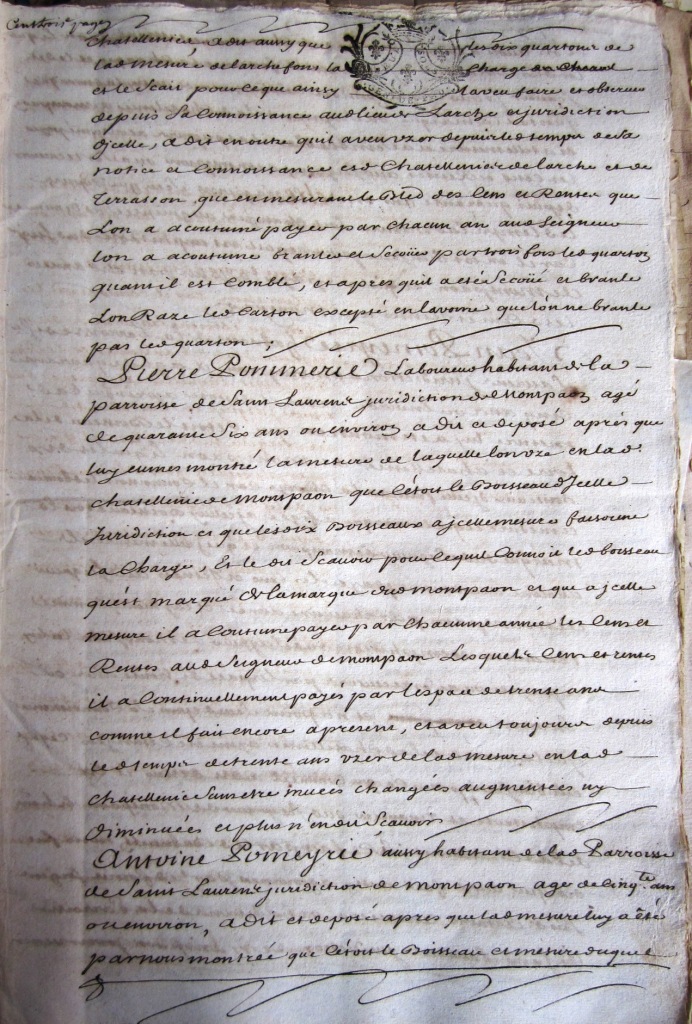 Cent trois pages
Chatellenies, a dit aussy que les dix quartons de
lad mesure de larche font la Charge de Cheval
et le scait pource que ainsy l'a veu faire et observer
depuis sa Connoissance aud lieu de Larche et juridiction
d'jcelle, a dit en outre qu'il a veu vzer depuis le temps de sa
notice et Connoissance esd Chatellenies de larche et de
Terrasson, que en mesurant le Bled des Cens et Rentes que
Lon a acoutumé payer par Chacun an aud Seigneur
lon a acoutumé branler et secoüer par trois fois led quarton
quant il est Comblé, et apres qu'il a eté Secoüé et branlé
Lon Raze led Carton excepté en lavoine que l'on ne branle
pas led quarton ;
Pierre Pommerie Laboureur habitant de la
parroisse de Saint Laurens juridiction de Montpaon, agé
de quarante Six ans ou environ, a dit et deposé aprés que
luy eumes montré la mesure de laquelle lon vze en lad
Chatellenie de montpaon que C'étoit le Boisseau d'Jcelle
Juridiction et que les dix Boisseaux a jcelle mesure font une
la Charge, Et le dit Scavoir pour ce qu'il Connoit led boisseau
qu'est marqué de la marque dud montpaon et que a jcelle
mesure il a Coutume payer par Chacunne année les Cens et
Rentes aud Seigneur de montpaon Lesquels Cens et rentes
il a Continuellement payés par l'espace de trente ans
comme il fait encore apresent, et a veu toujours depuis
led temps de trente ans vzer de lad mesure en lad
Chatellenie sans etre muées changées augmentées ny
diminuées et plus n'en dit Scavoir
Antoine Pomeyrie aussy habitant de lad Parroisse
de Saint Laurens juridiction de montpaon agé de Cinqte ans
ou environ, a dit et deposé apres que lad mesure luy a été
par nous montrée que C'étoit le Boisseau et mesure duquel